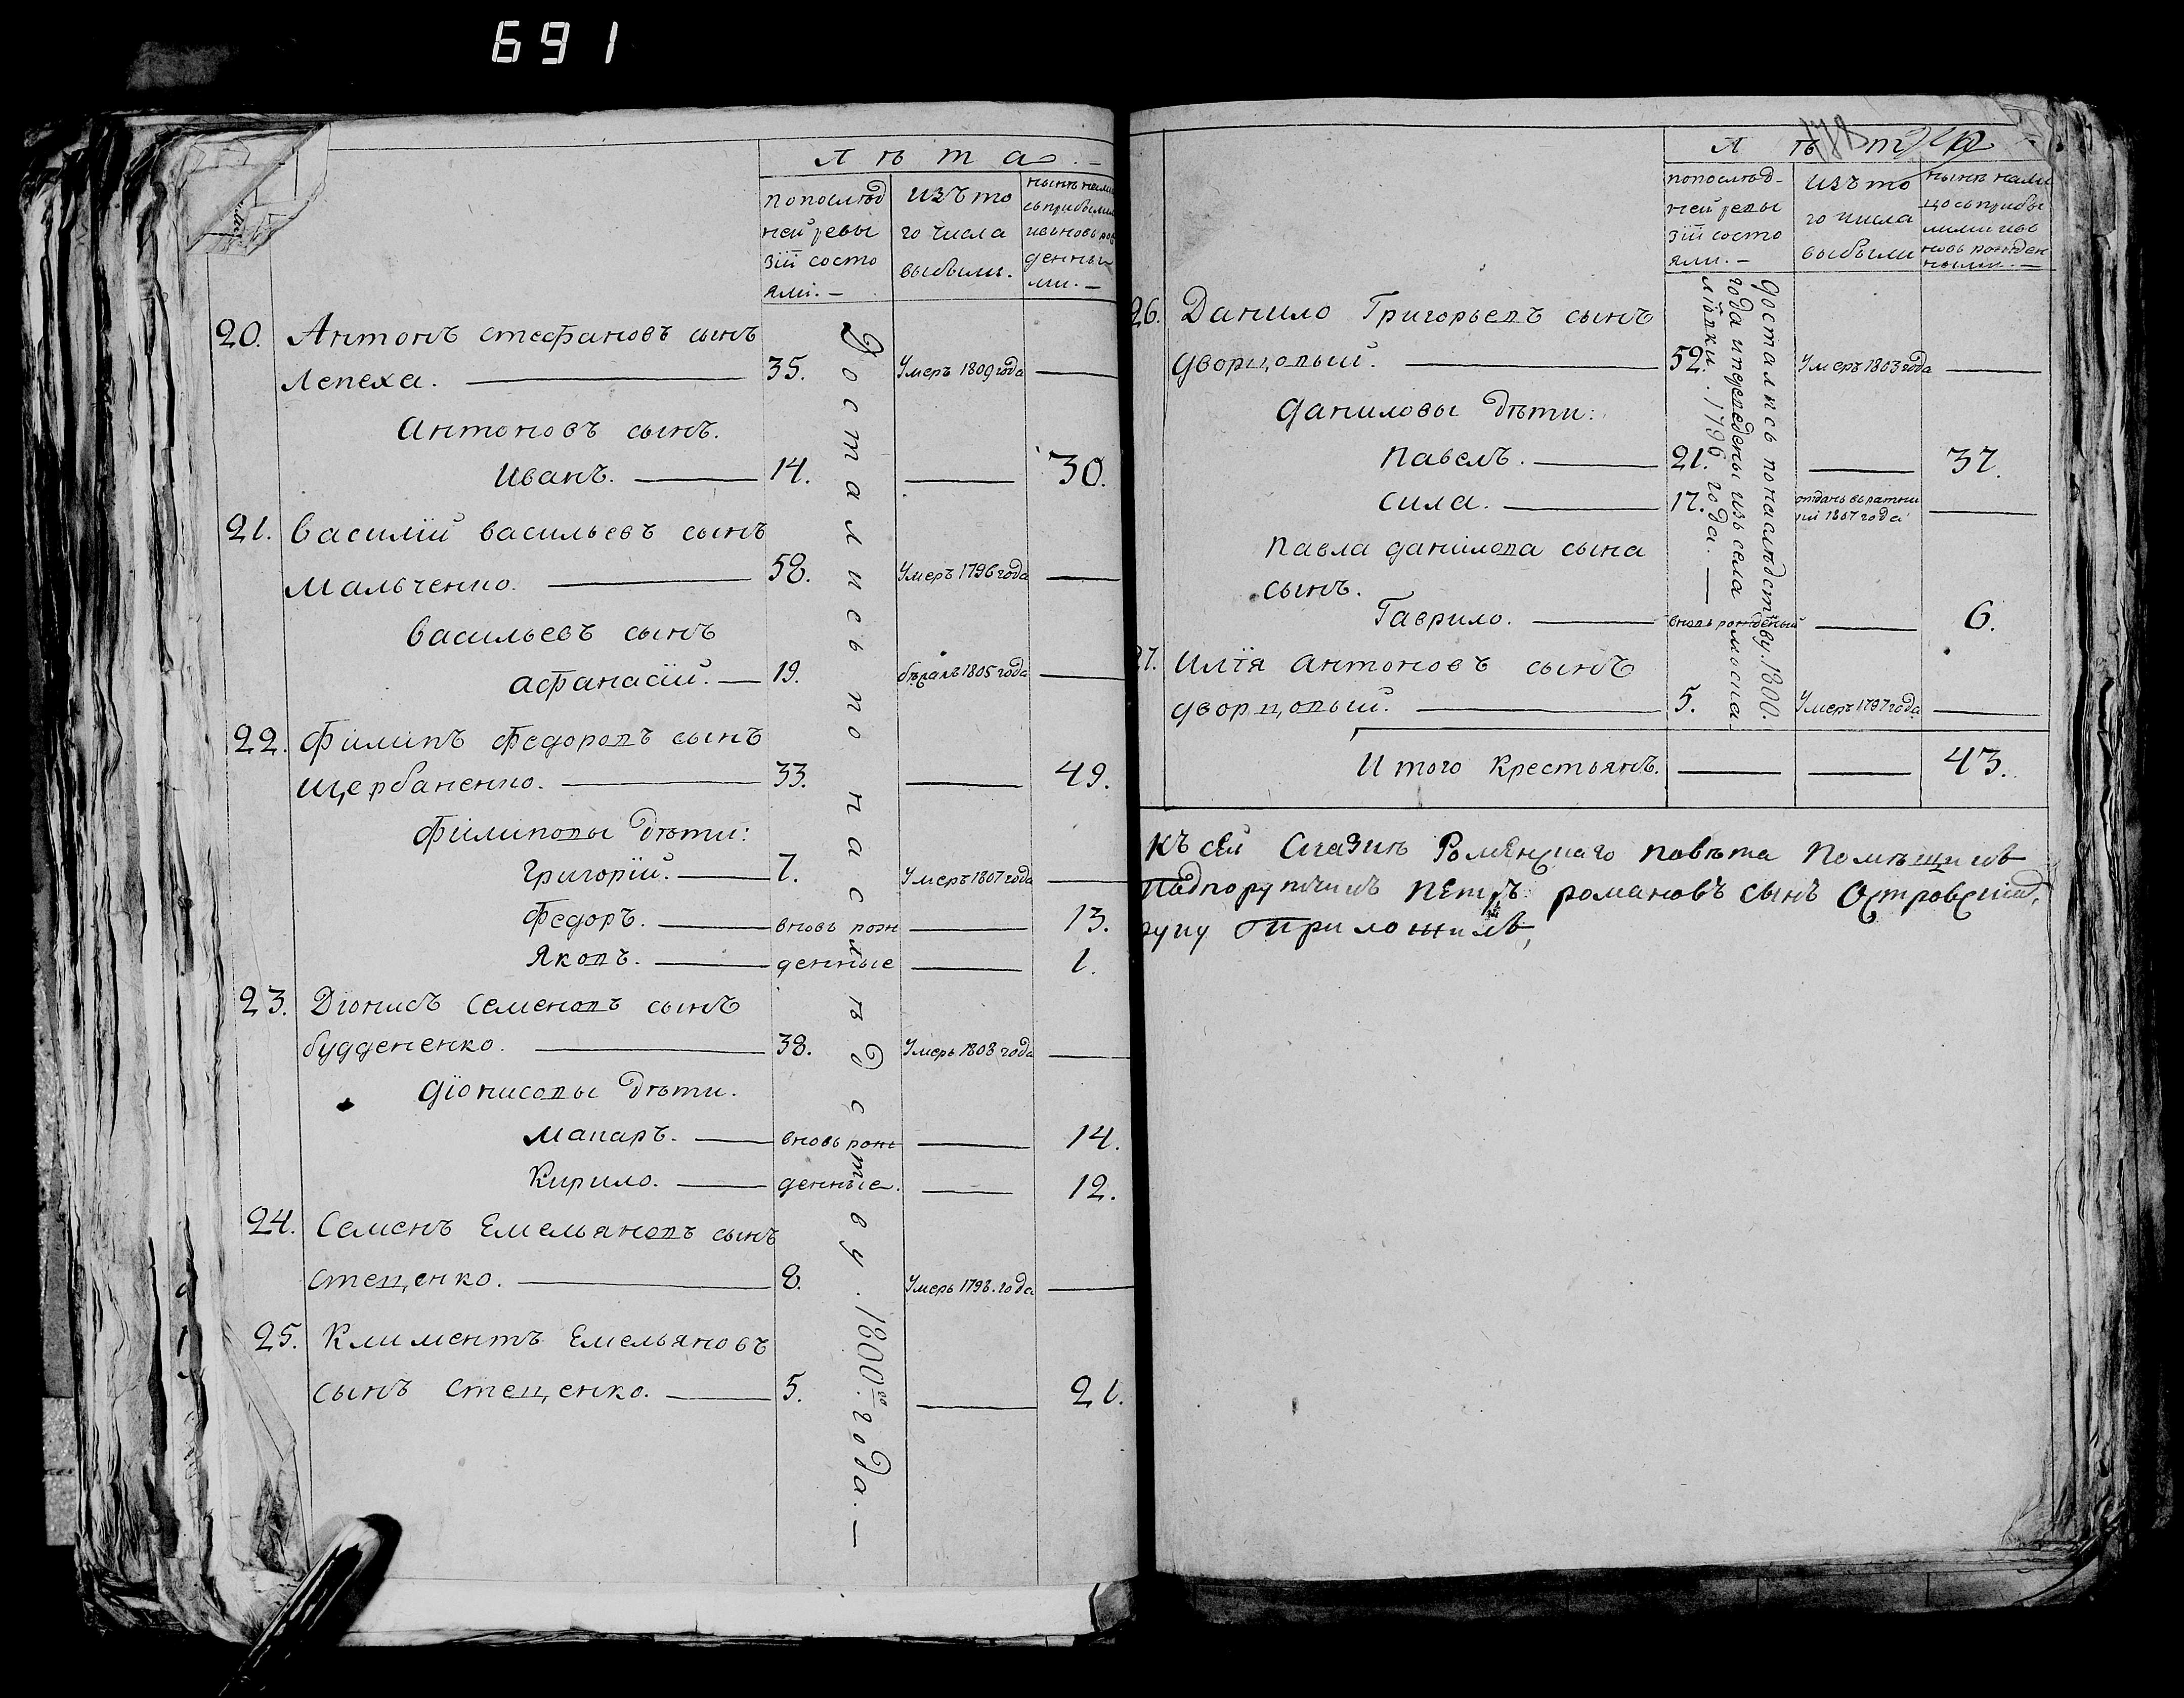 691
Лѣта. —
попослѣд
ней ревы
зіи состо
яли. —
изъ то
го числа
выбыли. —
нынѣ нали
съ прибыли
ивновь рож
денны
ми. —
20. Антонъ стефановъ сынъ
Лепеха. — 35. Умеръ 1809 года —
Антоновъ сынъ.
Иванъ. — 14. — 30.
21. Василій васильевъ сынъ
Мальченко. — 58. Умеръ 1796 года —
Васильевъ сынъ
Афанасій. — 19. бѣжалъ 1805 года —
22. Филипъ Федоровъ сынъ
Щербаненко. — 33. — 49.
Филиповы дѣти:
Григорій. — 7. Умеръ 1807 года —
Федоръ. — вновь рож — 13.
Яковъ. — денные — 1.
23. Діонисъ Семеновъ сынъ
буддененко. — 38. Умеръ 1808 года —
Діонисовы дѣти.
Макаръ. — вновь рож — 14.
Кирило. — денные. — 12.
24. Семенъ Емельяновъ сынъ
Стеценко. — 8. Умеръ 1798. года —
25. Климентъ Емельяновъ
сынъ Стеценко. — 5. — 21.
Достались по наслѣдству. 1800го года. —
Лѣта
попослѣд-
ней ревы
зіи состо
яли. —
изъ то
го числа
выбыли
нынѣ нали
цо съ прибы
лими ивъ
новь рожден
ными. —
26. Данило Григорьевъ сынъ
дворцовый. — 52. Умеръ 1803 года —
Даниловы дѣти:
Павелъ. — 21. — 37.
Сила. — 17. отданъ въ ратни
ки 1807 года —
Павла данилова сына
сынъ.
Гаврило. — вновь рожденый — 6.
27. Илія Антоновъ сынъ
дворцовый. — 5. Умеръ 1797 года —
Достались понаслѣдству. 1800.
года ипереведены изъ села
1796 года. —
Итого крестьянъ. — — 43.
Къ сей Сказкѣ Роменскаго повѣта Помѣщикъ
Подпорутчикъ Петръ романовъ сынъ Островский,
руку Приложилъ,